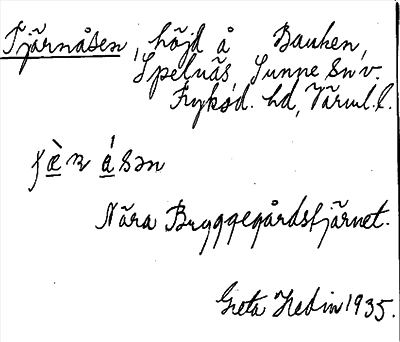 Tjärnåsen, höjd å Bauken,
Spelnäs, Sunne sn v.
Fryksd. hd, Värml. l.
Nära Bryggegårdstjärnet.
Greta Hedin 1935.